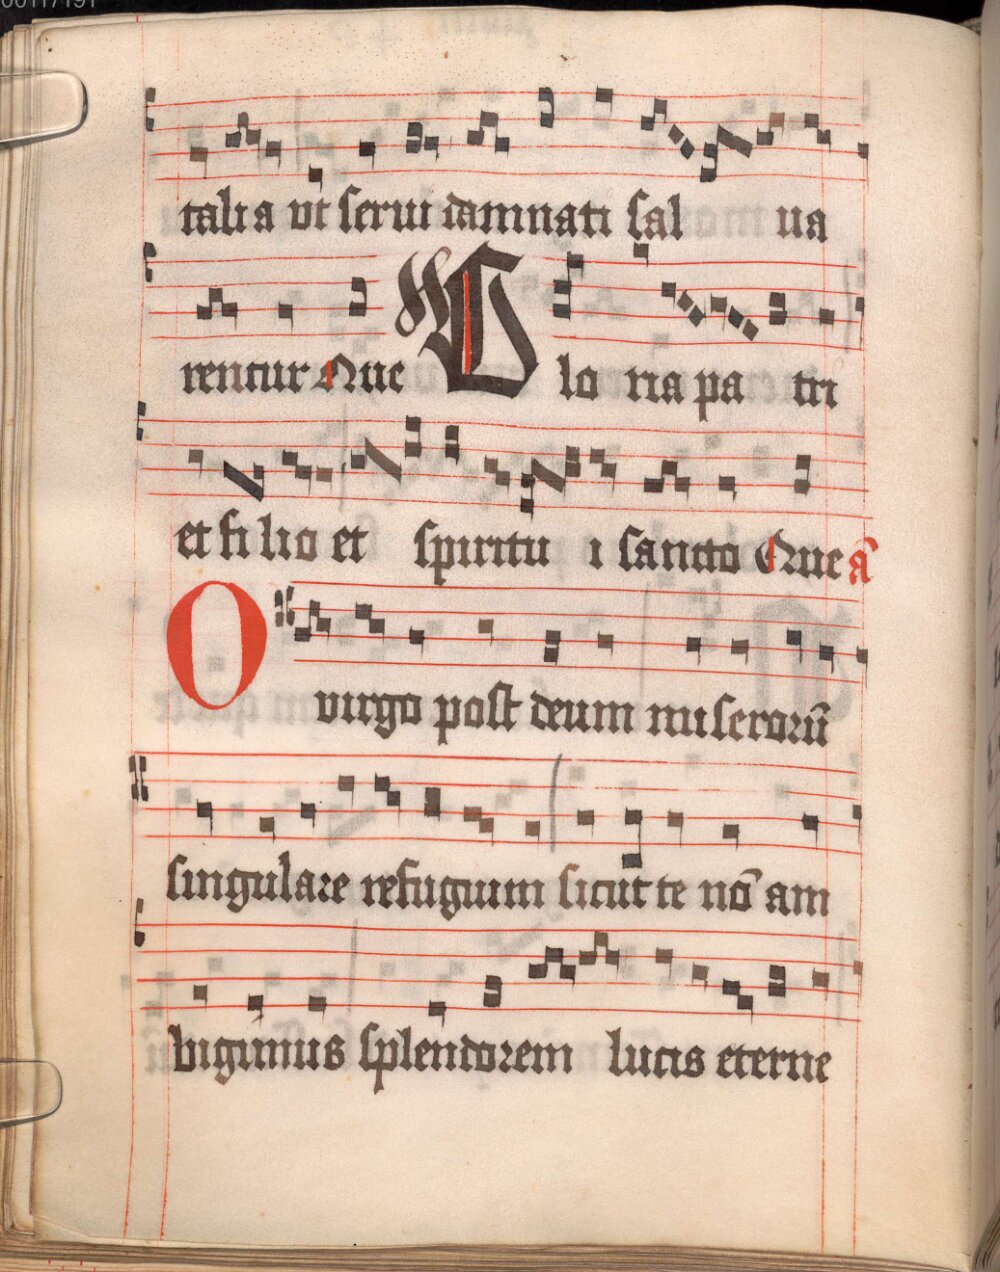 00117191
talia vt serui damnati sal ua
rentur Que Glo ria pa tri
et fi lio et spiritu i sancto Que a͞
O virgo post deum miserorū
singulare refugium sicut te nō am
bigimus splendorem lucis eterne